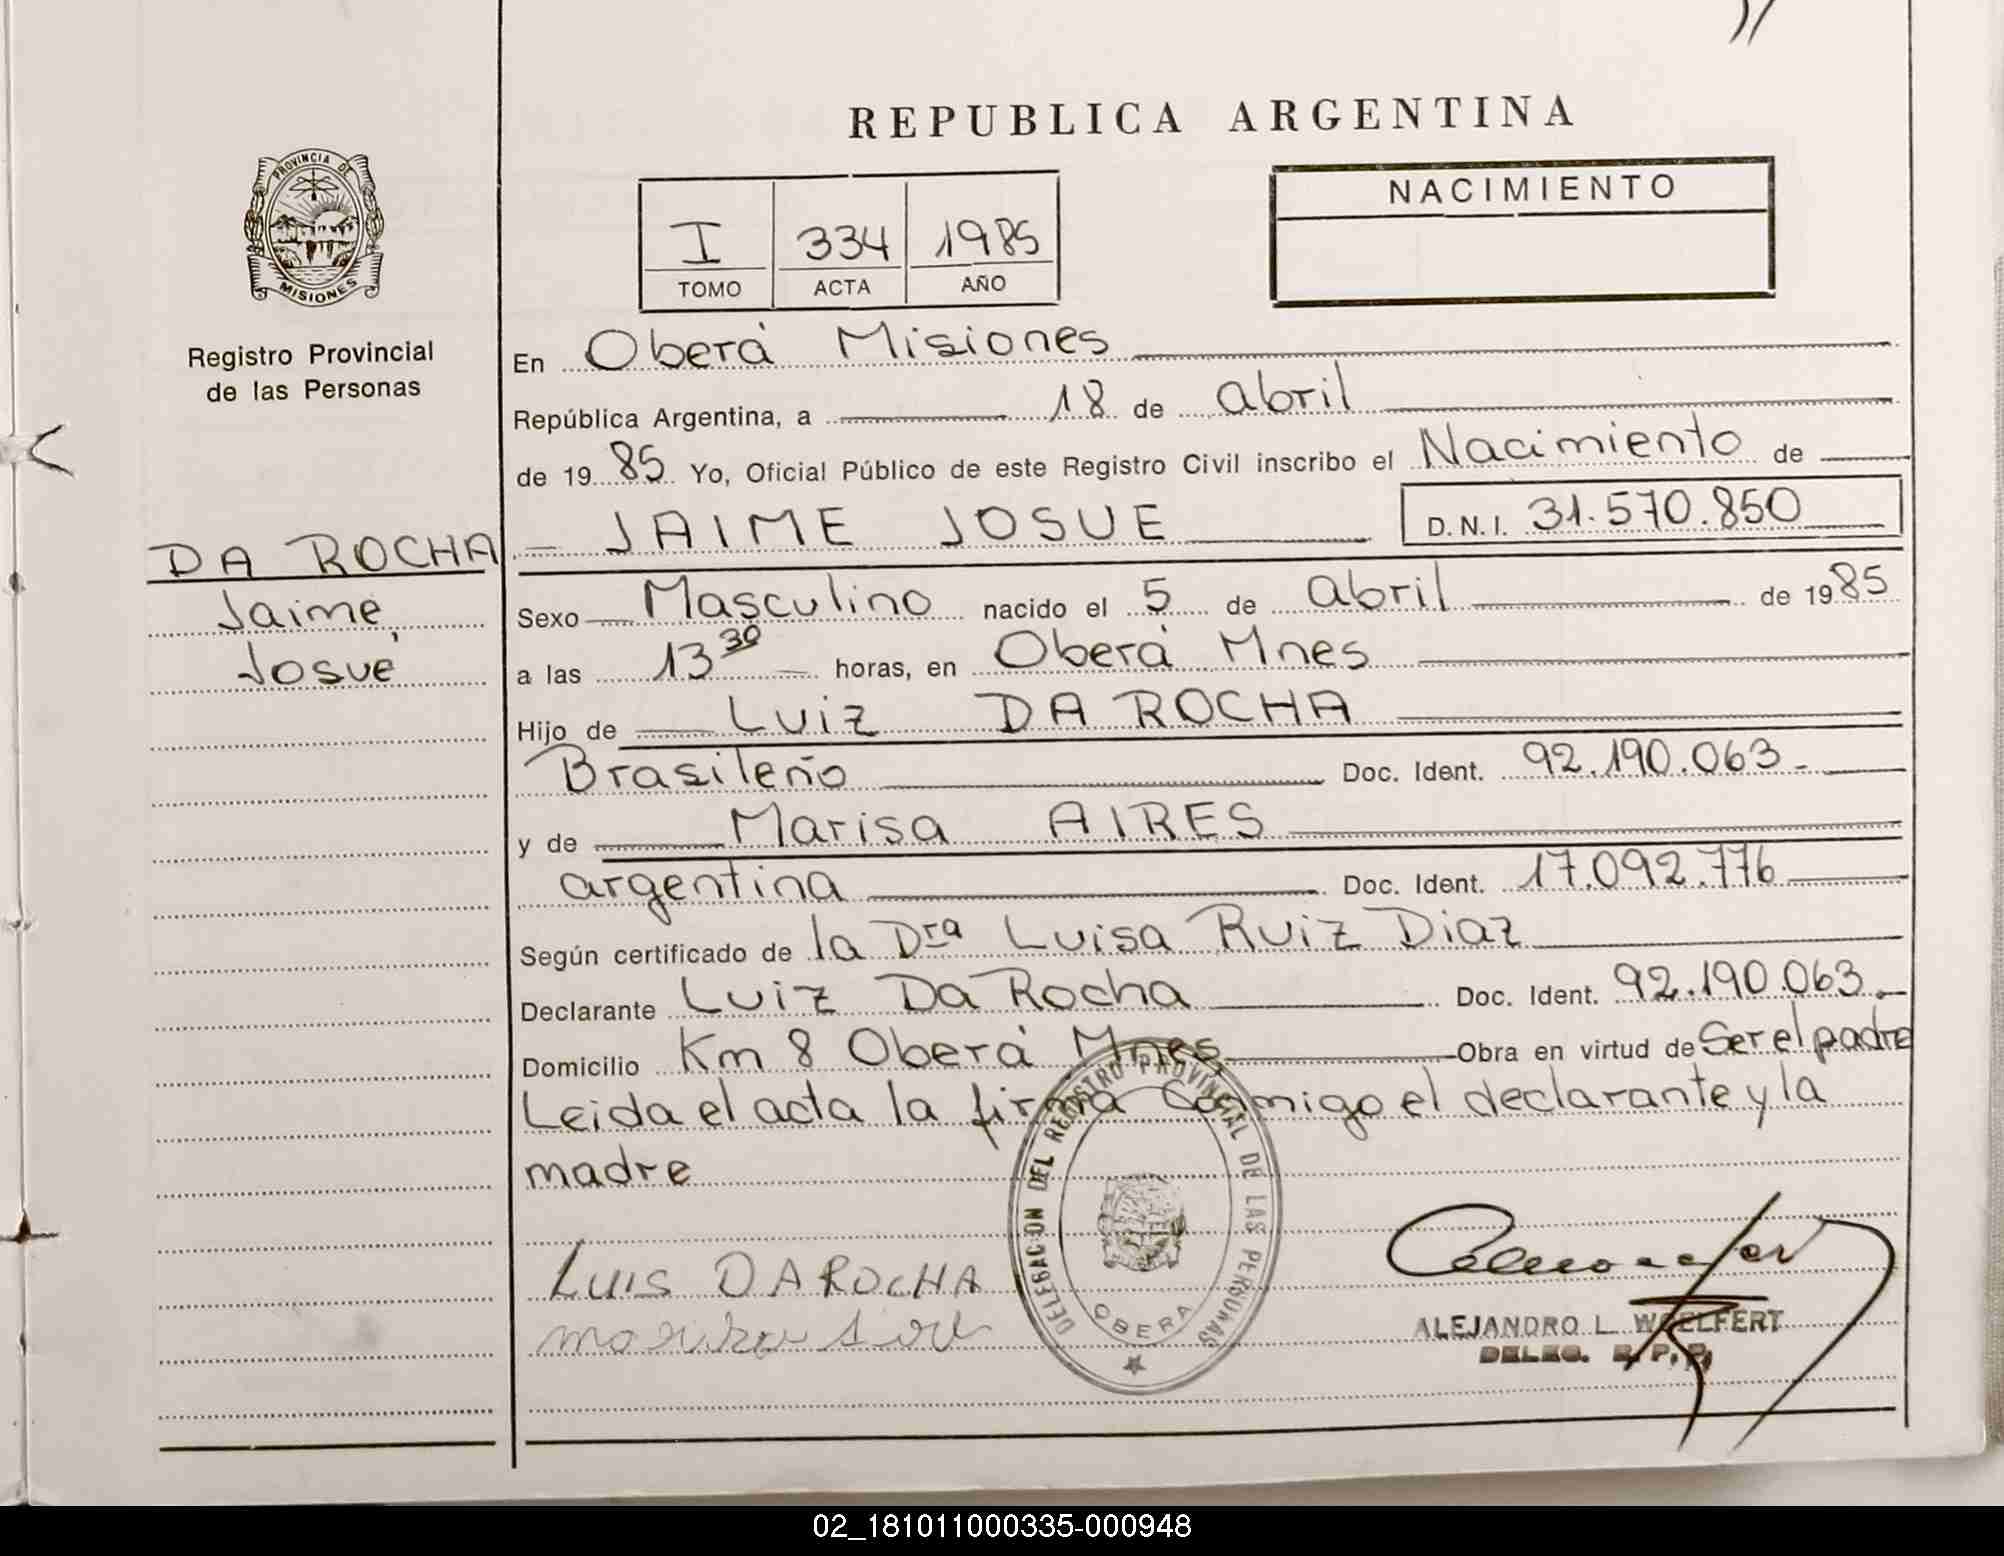 REPUBLICA ARGENTINA
PROVINCIA DE
MISIONES
Registro Provincial
de las Personas
I 334 1985
TOMO ACTA AÑO
NACIMIENTO
En Oberá Misiones
República Argentina, a 18 de abril
de 1985 Yo, Oficial Público de este Registro Civil inscribo el Nacimiento de
JAIME JOSUE D.N.I. 31.570.850
DA ROCHA
Jaime,
Josué
Sexo Masculino nacido el 5 de abril de 1985
a las 13 30 horas, en Oberá Mnes
Hijo de Luiz DA ROCHA
Brasileño Doc. Ident. 92.190.063.-
y de Marisa AIRES
argentina Doc. Ident. 17.092.776
Según certificado de la Dra Luisa Ruiz Diaz
Declarante Luiz Da Rocha Doc. Ident. 92.190.063.-
Domicilio Km 8 Oberá Mnes Obra en virtud de Ser el padre
Leida el acta la firma conmigo el declarante y la
madre
DELEGACION DEL REGISTRO PROVINCIAL DE LAS PERSONAS
OBERA
LUIS DA ROCHA
ALEJANDRO L. WOELFERT
DELEG. R.P.P.
02_181011000335-000948